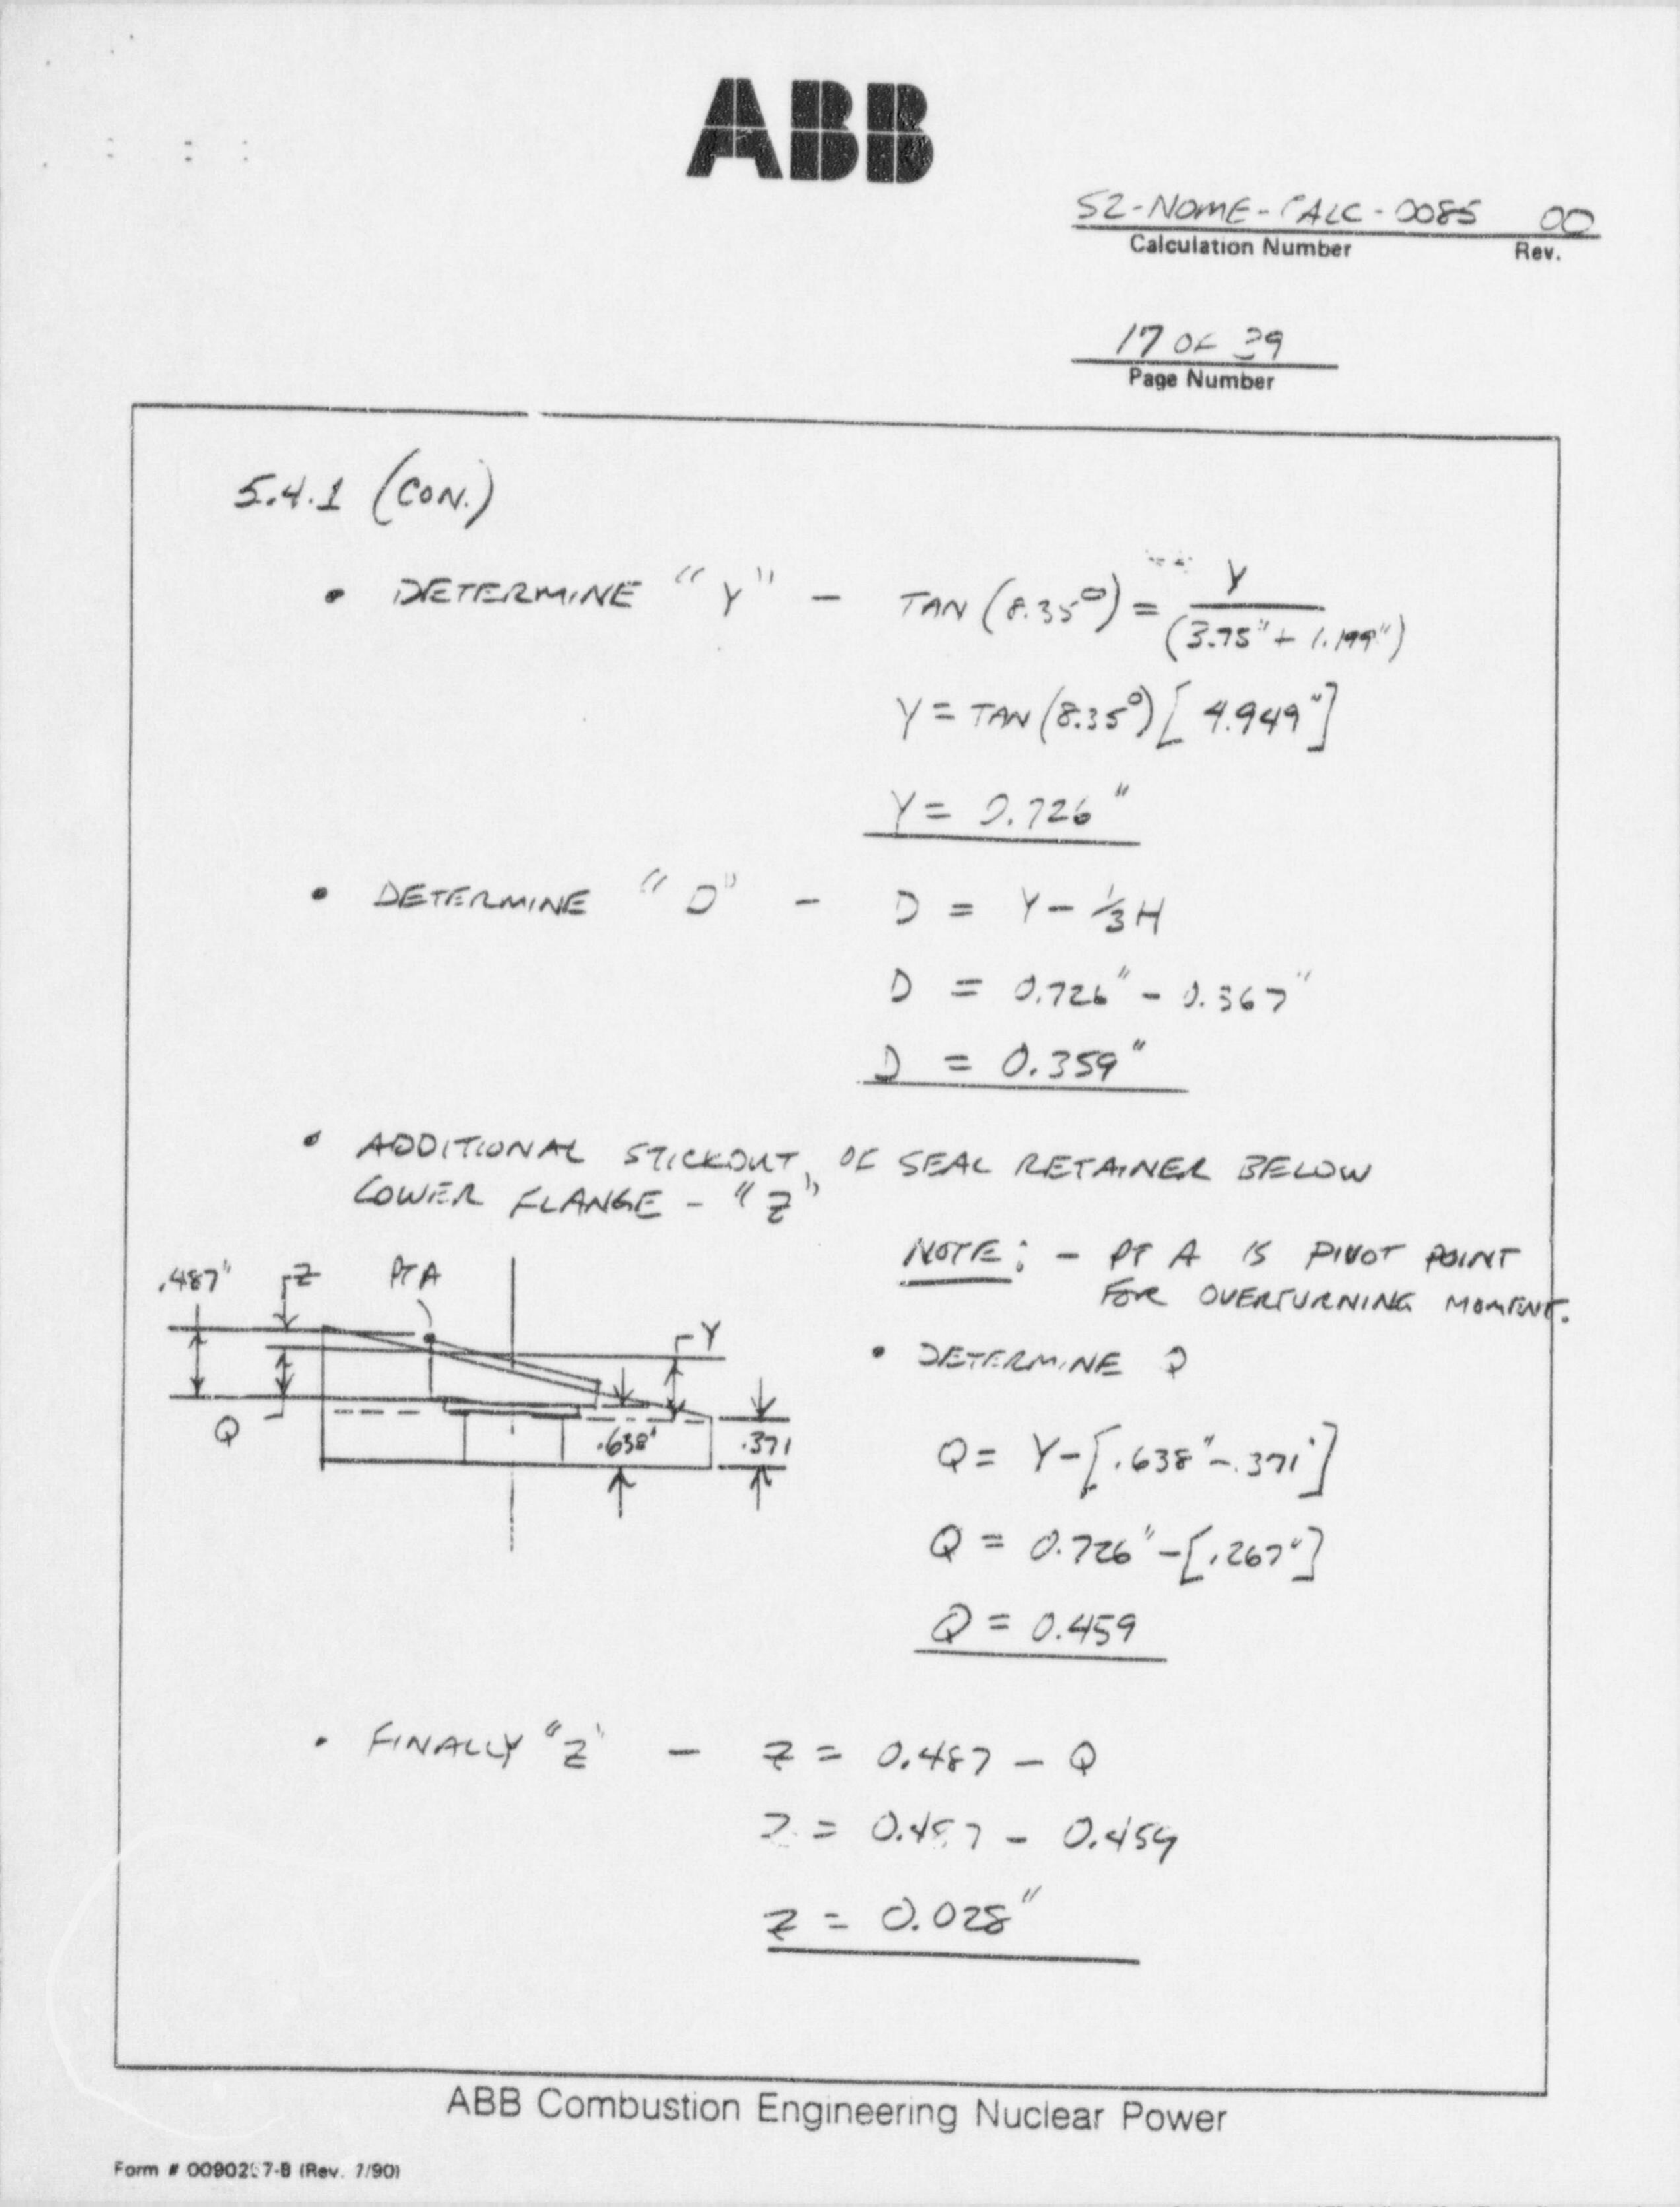 ABB
S2-NOME-CALC-0085 00
Calculation Number Rev.
17 OF 39
Page Number
5.4.1 (CON.)
• DETERMINE "Y" - TAN (8.35°) = Y / (3.75" + 1.199")
Y = TAN (8.35°) [4.949"]
Y = 0.726"
• DETERMINE "D" - D = Y - 1/3 H
D = 0.726" - 0.367"
D = 0.359"
• ADDITIONAL STICKOUT OF SEAL RETAINER BELOW
LOWER FLANGE - "Z"
NOTE: - PT A IS PIVOT POINT
FOR OVERTURNING MOMENT.
.487" Z PT A
Y
Q
.638" .371
• DETERMINE Q
Q = Y - [.638" - .371"]
Q = 0.726" - [.267"]
Q = 0.459
• FINALLY "Z" - Z = 0.487 - Q
Z = 0.487 - 0.459
Z = 0.028"
ABB Combustion Engineering Nuclear Power
Form # 0090257-B (Rev. 7/90)